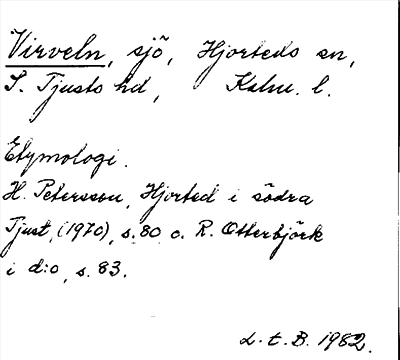 Virveln, sjö, Hjorteds sn,
S. Tjusts hd, Kalm. l.
Etymologi.
H. Petersson, Hjorted i södra
Tjust, (1970), s. 80 o. R. Otterbjörk
i d:o, s. 83.
L. t. B. 1982.